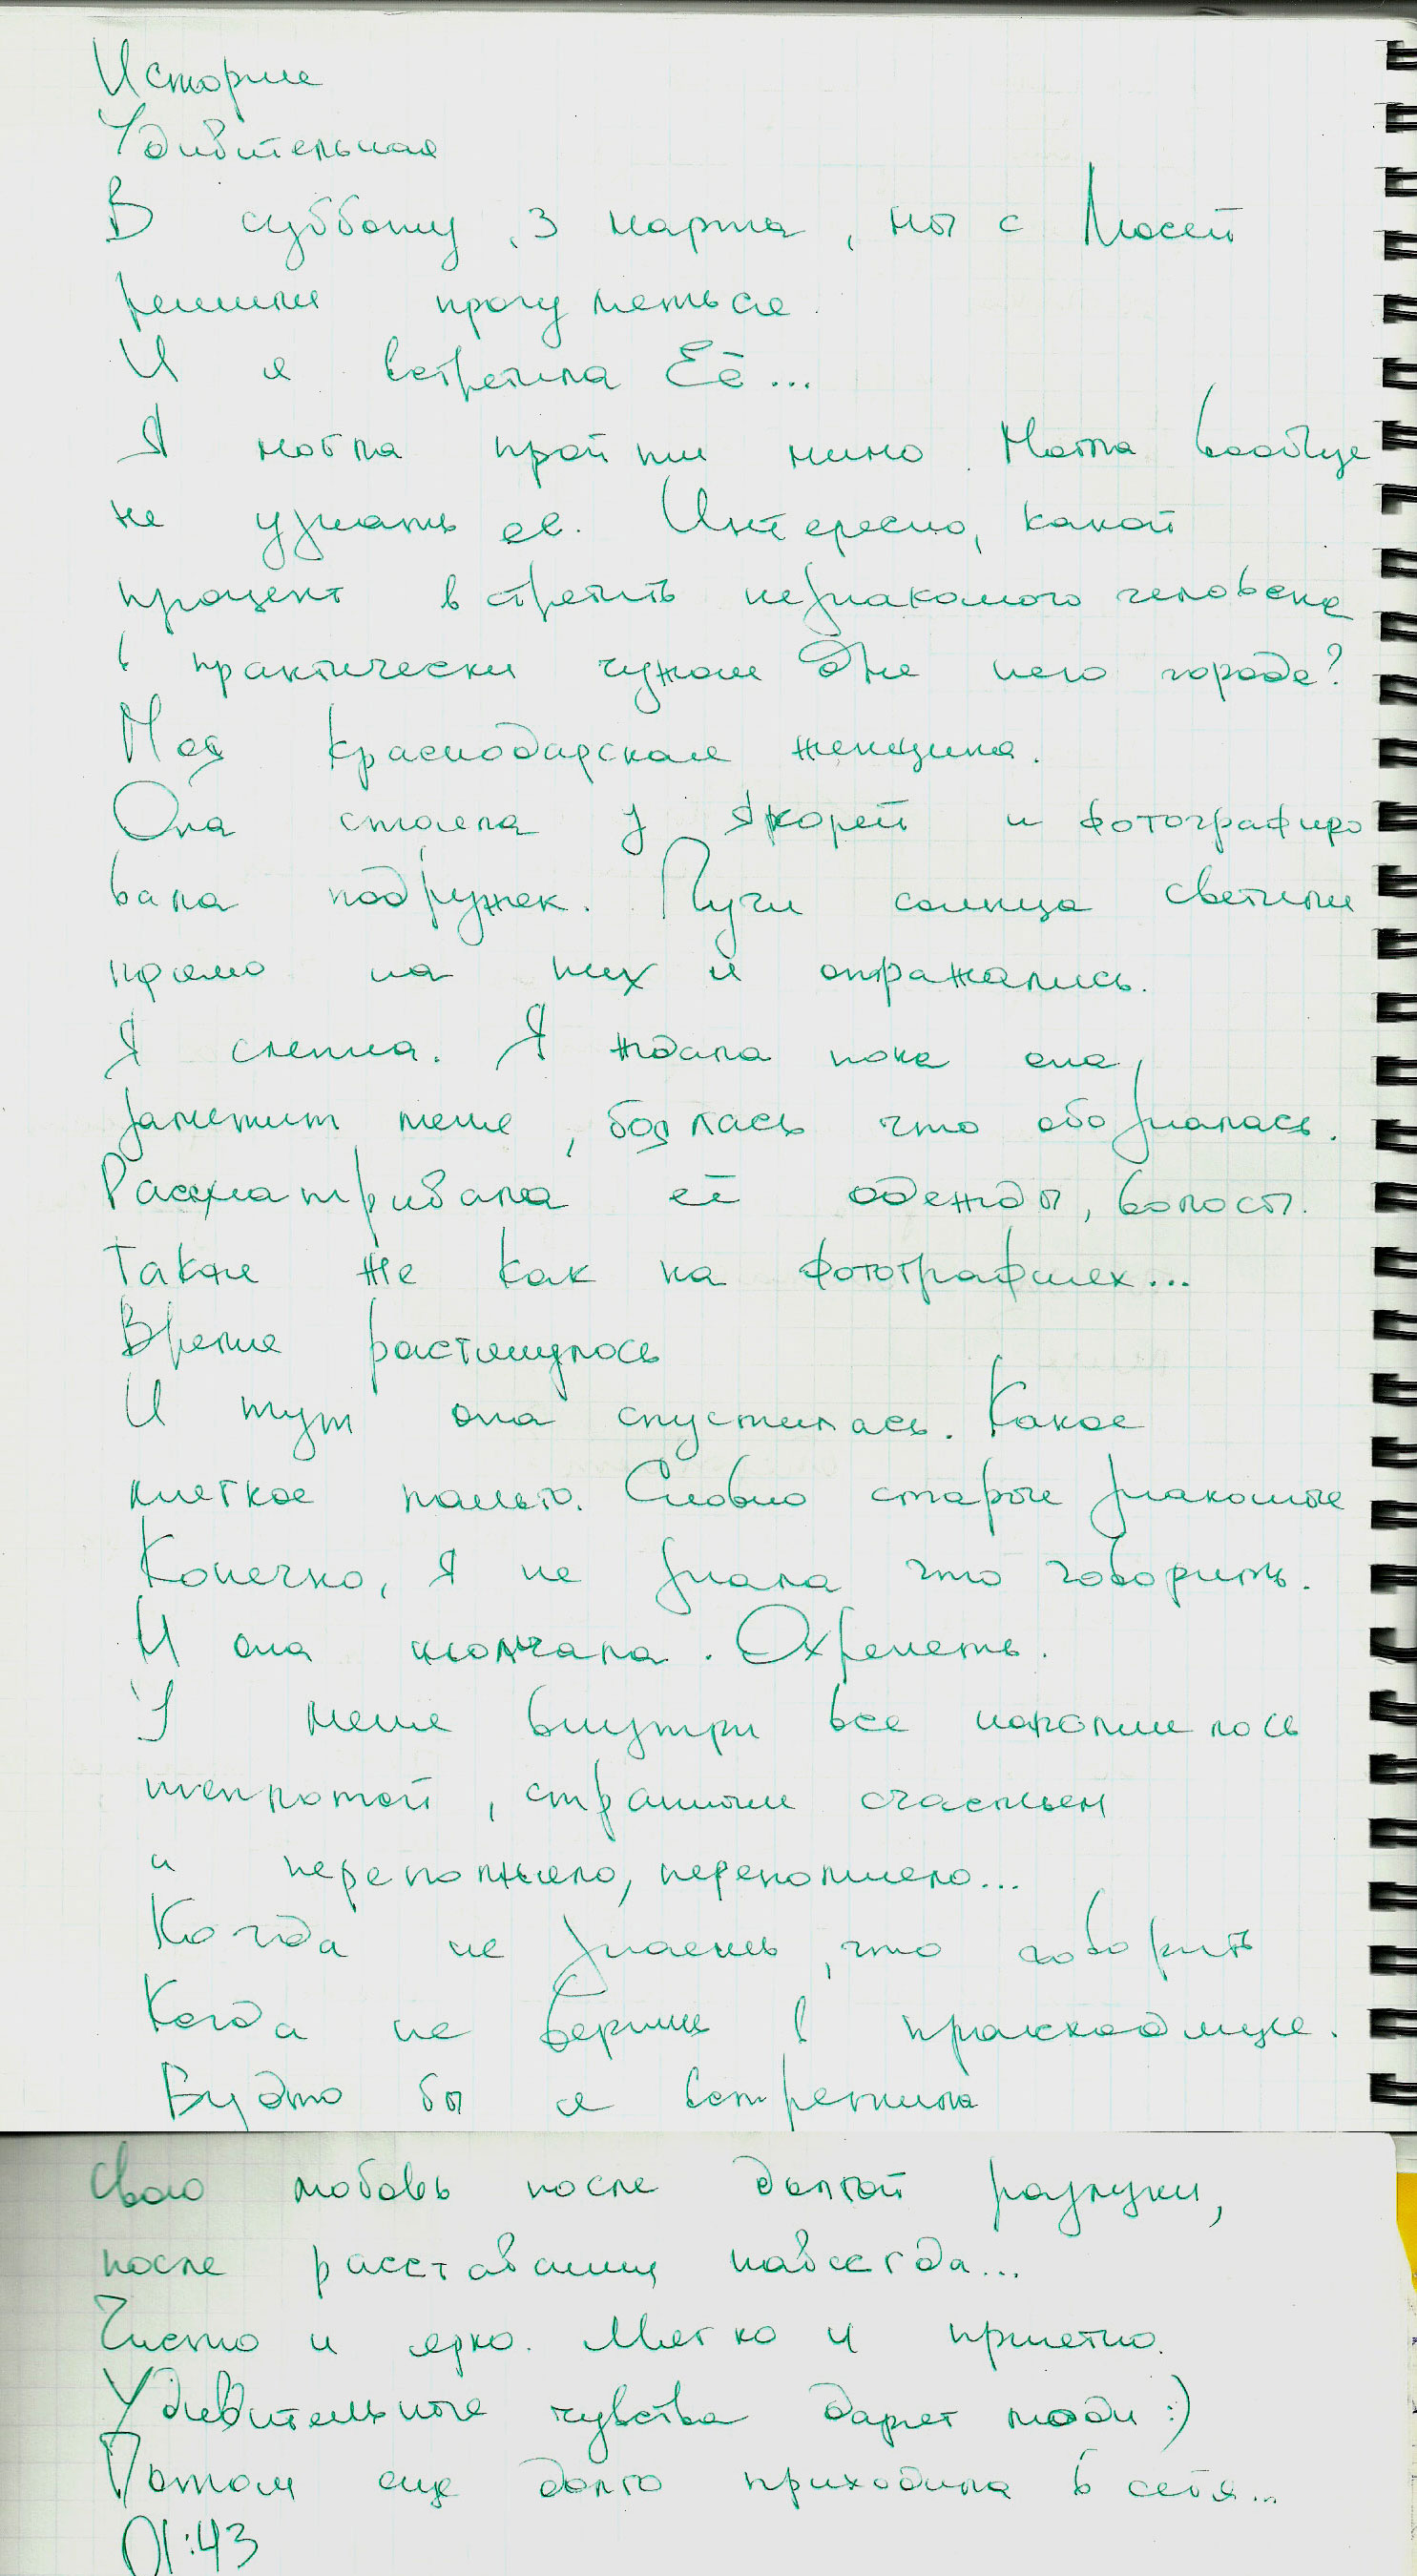 История
Удивительная
В субботу, 3 марта, мы с Люсей
решили прогуляться.
И я встретила Её...
Я могла пройти мимо. Могла вообще
не узнать ее. Интересно, какой
процент встретить незнакомого человека
в практически чужом для него городе?
Моя краснодарская женщина.
Она стояла у якорей и фотографиро
вала подружек. Лучи солнца светили
прямо на них и отражались.
Я слепла. Я ждала пока она
заметит меня, боялась что обозналась.
Рассматривала её одежды, волосы.
Такие же как на фотографиях...
Время растянулось
И тут она спустилась. Какое
мягкое пальто. Словно старые знакомые
Конечно, я не знала что говорить.
И она молчала. Охренеть.
У меня внутри все наполнилось
теплотой, странным счастьем
и переполняло, переполняло...
Когда не знаешь, что говорить
Когда не веришь в происходящее.
Будто бы я встретила
свою любовь после долгой разлуки,
после расставания навсегда...
Чисто и ярко. Мягко и приятно.
Удивительные чувства дарят люди :)
Потом еще долго приходила в себя...
01:43